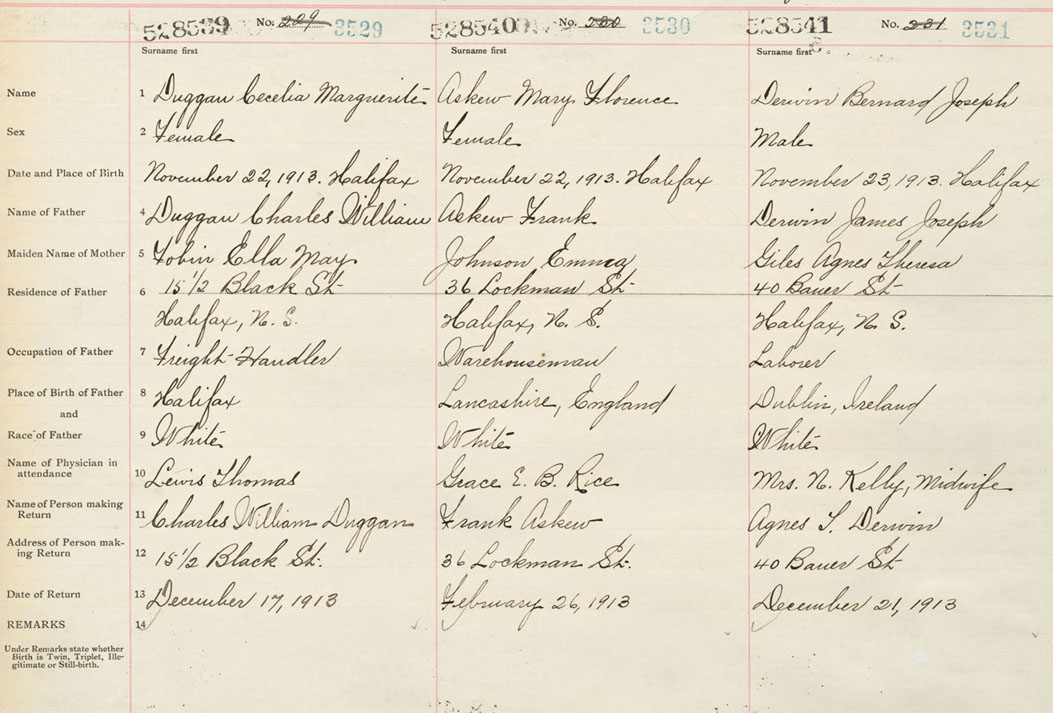 528539 No. 209 3529 528540 No. 230 3530 528541 No. 231 3531
Surname first Surname first Surname first
Name 1 Duggan Cecelia Marguerite Askew Mary Florence Derwin Bernard Joseph
Sex 2 Female Female Male
Date and Place of Birth November 22, 1913. Halifax November 22, 1913. Halifax November 23, 1913. Halifax
Name of Father 4 Duggan Charles William Askew Frank Derwin James Joseph
Maiden Name of Mother 5 Tobin Ella May Johnson Emma Giles Agnes Theresa
Residence of Father 6 15 1/2 Black St. 36 Lockman St. 40 Bauer St.
Halifax, N. S. Halifax, N. S. Halifax, N. S.
Occupation of Father 7 Freight Handler Warehouseman Laborer
Place of Birth of Father 8 Halifax Lancashire, England Dublin, Ireland
and
Race of Father 9 White White White
Name of Physician in
attendance 10 Lewis Thomas Grace E. B. Rice Mrs. N. Kelly, Midwife
Name of Person making
Return 11 Charles William Duggan Frank Askew Agnes T. Derwin
Address of Person mak-
ing Return 12 15 1/2 Black St. 36 Lockman St. 40 Bauer St
Date of Return 13 December 17, 1913 February 26, 1913 December 21, 1913
REMARKS 14
Under Remarks state whether
Birth is Twin, Triplet, Ille-
gitimate or Still-birth.